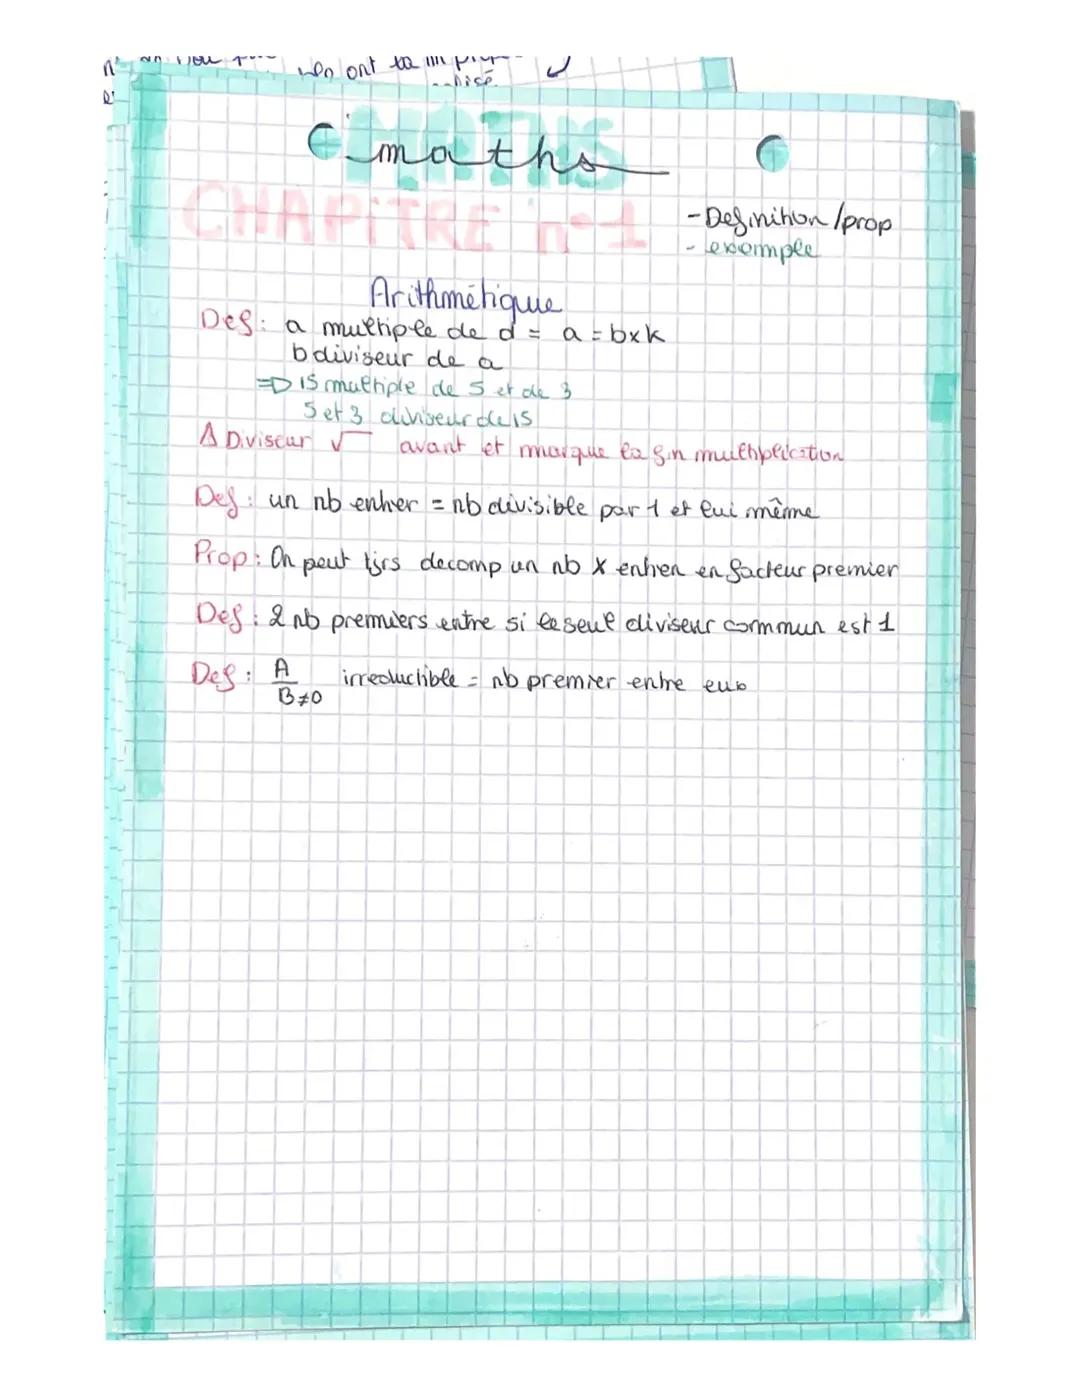 ont la
MATHS
maths
CHAPiTRE n°1
- Definition / prop
- exemple
Arithmétique
Def : a multiple de d = a = b x k
b diviseur de a
=D 15 multiple de 5 et de 3
5 et 3 diviseur de 15
Δ Diviseur √ avant et marque la fin multiplication
Def : un nb entier = nb divisible par 1 et lui même
Prop : On peut tjrs decomp un nb X entier en facteur premier
Def : 2 nb premiers entre si le seul diviseur commun est 1
Def : A irreductible = nb premier entre eux
B ≠ 0